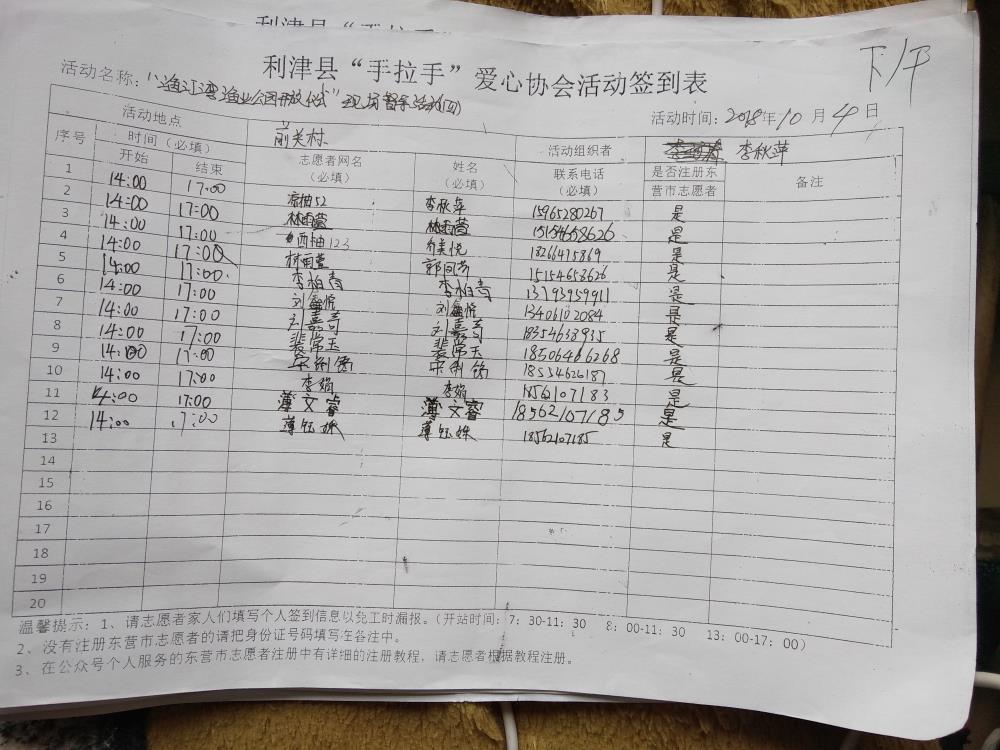 利津县“手拉手”
下/午
利津县“手拉手”爱心协会活动签到表
活动名称：“渔江湾渔业公园开放仪式”现场督导活动(四)
活动时间：2018年10月4日
活动地点 前关村 活动组织者 李秋萍
序号 时间（必填） 志愿者网名（必填） 姓名（必填） 联系电话（必填） 是否注册东营市志愿者 备注
开始 结束
1 14:00 17:00 李秋萍 15965280267 是
2 14:00 17:00 林雨萱 林雨萱 15154658626 是
3 14:00 17:00 西柚123 18266475869 是
4 14:00 17:00 林雨萱 15154658626 是
5 14:00 17:00 李柏青 李柏青 13793959911 是
6 14:00 17:00 刘鑫悦 刘鑫悦 13406102084 是
7 14:00 17:00 刘嘉奇 刘嘉奇 18354638935 是
8 14:00 17:00 裴常玉 裴常玉 18506466268 是
9 14:00 17:00 18534626187 是
10 14:00 17:00 李娟 李娟 是
11 14:00 17:00 薄文睿 薄文睿 18562107185 是
12 14:00 17:00 薄钰姝 薄钰姝 18562107185 是
13
14
15
16
17
18
19
20
温馨提示：1、请志愿者家人们填写个人签到信息以免工时漏报。（开站时间：7：30-11：30 8：00-11：30 13：00-17：00）
2、没有注册东营市志愿者的请把身份证号码填写在备注中。
3、在公众号个人服务的东营市志愿者注册中有详细的注册教程，请志愿者根据教程注册。